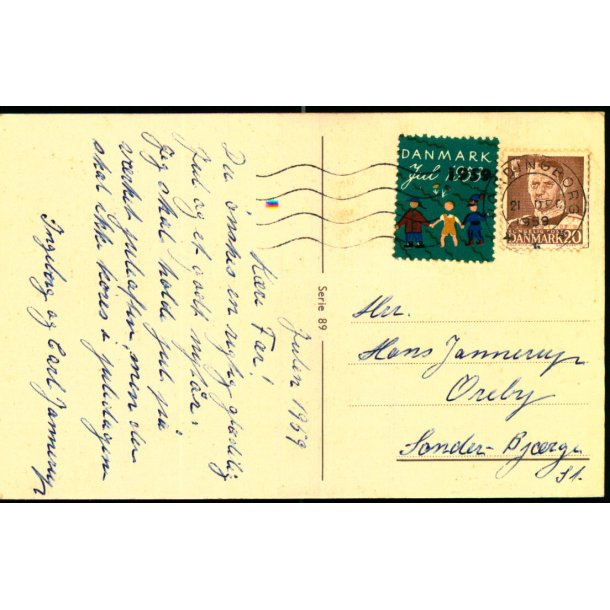 Julen 1959
Kære Far,
Du ønskes en rigtig glædelig
Jul og et godt nytår.
Jeg skal holde jul på
værket juleaften, men der
skal ikke køres i juledagene
Ingeborg og Carl Jannerup
Serie 89
DANMARK
Jul
1959
21 DEC
1959
DANMARK 20
Hr.
Hans Jannerup
Oreby
Sønder-Bjærge
St.